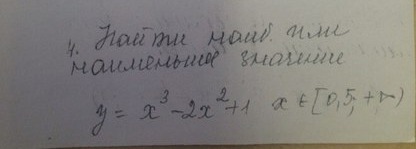 4. Найти наиб или
наименьшое значение
y = x³-2x²+1 x ∈ [0,5; +∞)